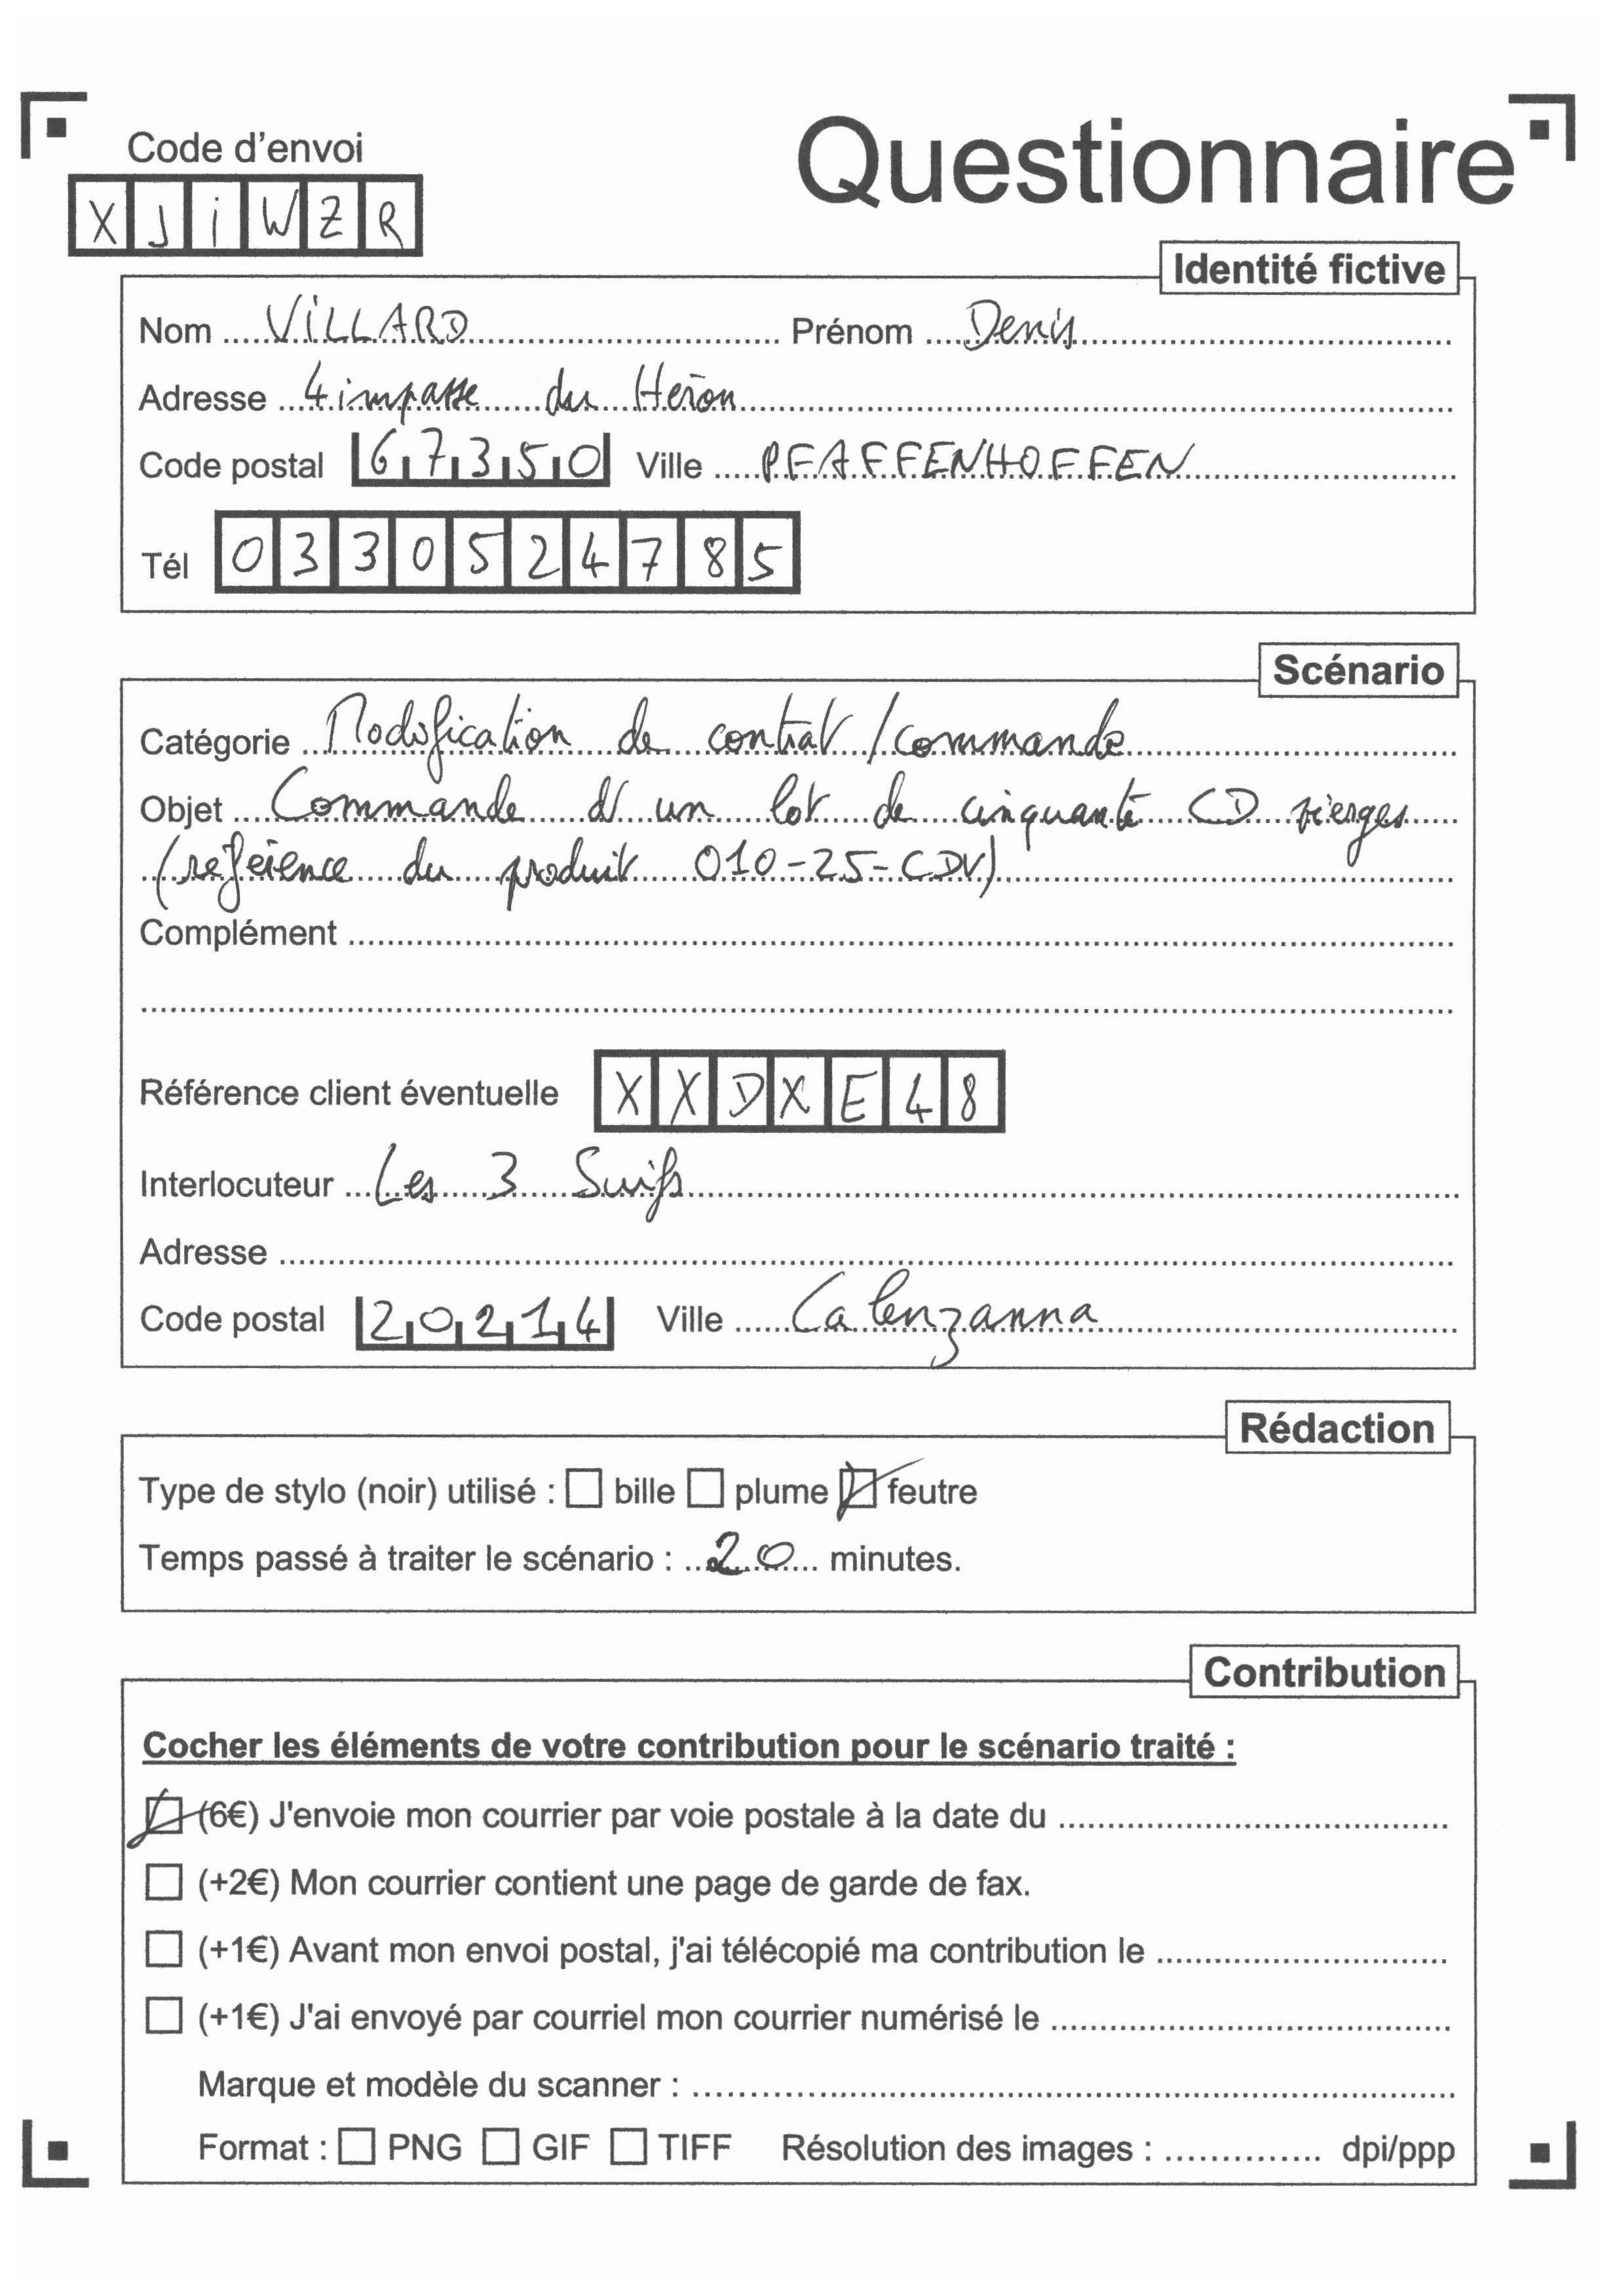 Code d'envoi
Questionnaire
XJiWZR
Identité fictive
Nom ViLLARD Prénom Denis
Adresse 4 impasse du Héron
Code postal 67350 Ville PFAFFENHOFFEN
Tél 0330524785
Scénario
Catégorie Modification de contrat / commande
Objet Commande d'un lot de cinquante CD vierges
(référence du produit 010-25-CDV)
Complément
Référence client éventuelle XXDXE48
Interlocuteur Les 3 Suiss
Adresse
Code postal 20214 Ville Calenzanna
Rédaction
Type de stylo (noir) utilisé : bille plume feutre
Temps passé à traiter le scénario : 20 minutes.
Contribution
Cocher les éléments de votre contribution pour le scénario traité :
(6€) J'envoie mon courrier par voie postale à la date du
(+2€) Mon courrier contient une page de garde de fax.
(+1€) Avant mon envoi postal, j'ai télécopié ma contribution le
(+1€) J'ai envoyé par courriel mon courrier numérisé le
Marque et modèle du scanner :
Format : PNG GIF TIFF Résolution des images : dpi/ppp